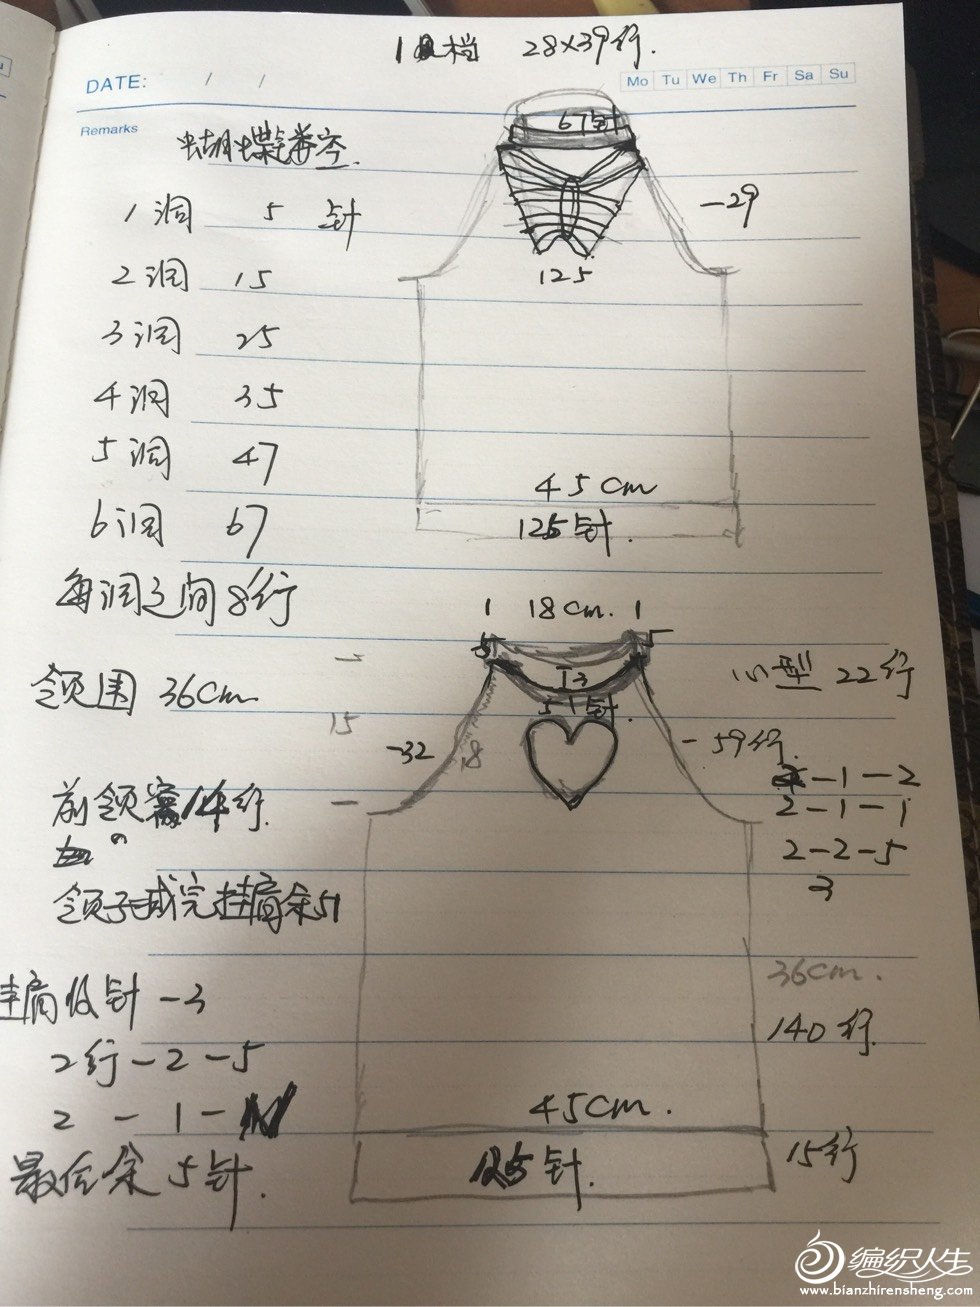 28×39行.
DATE: / /
Mo Tu We Th Fr Sa Su
Remarks
67针
蝴蝶
1洞 5 针
-29
2洞 15
125
3洞 25
4洞 35
5洞 47
45cm
6洞 67
125针.
每洞之间8行
1 18cm. 1
5 5
心型 22行
领围 36cm
13
51针.
15
-32 18
-59行.
4-1-2
前领窝14行.
2-1-1
2-2-5
3
领子 完挂肩余51
36cm.
挂肩收针 -3
140行.
2行-2-5
2-1-
45cm.
最后余5针.
125针.
15行
编织人生
www.bianzhirensheng.com